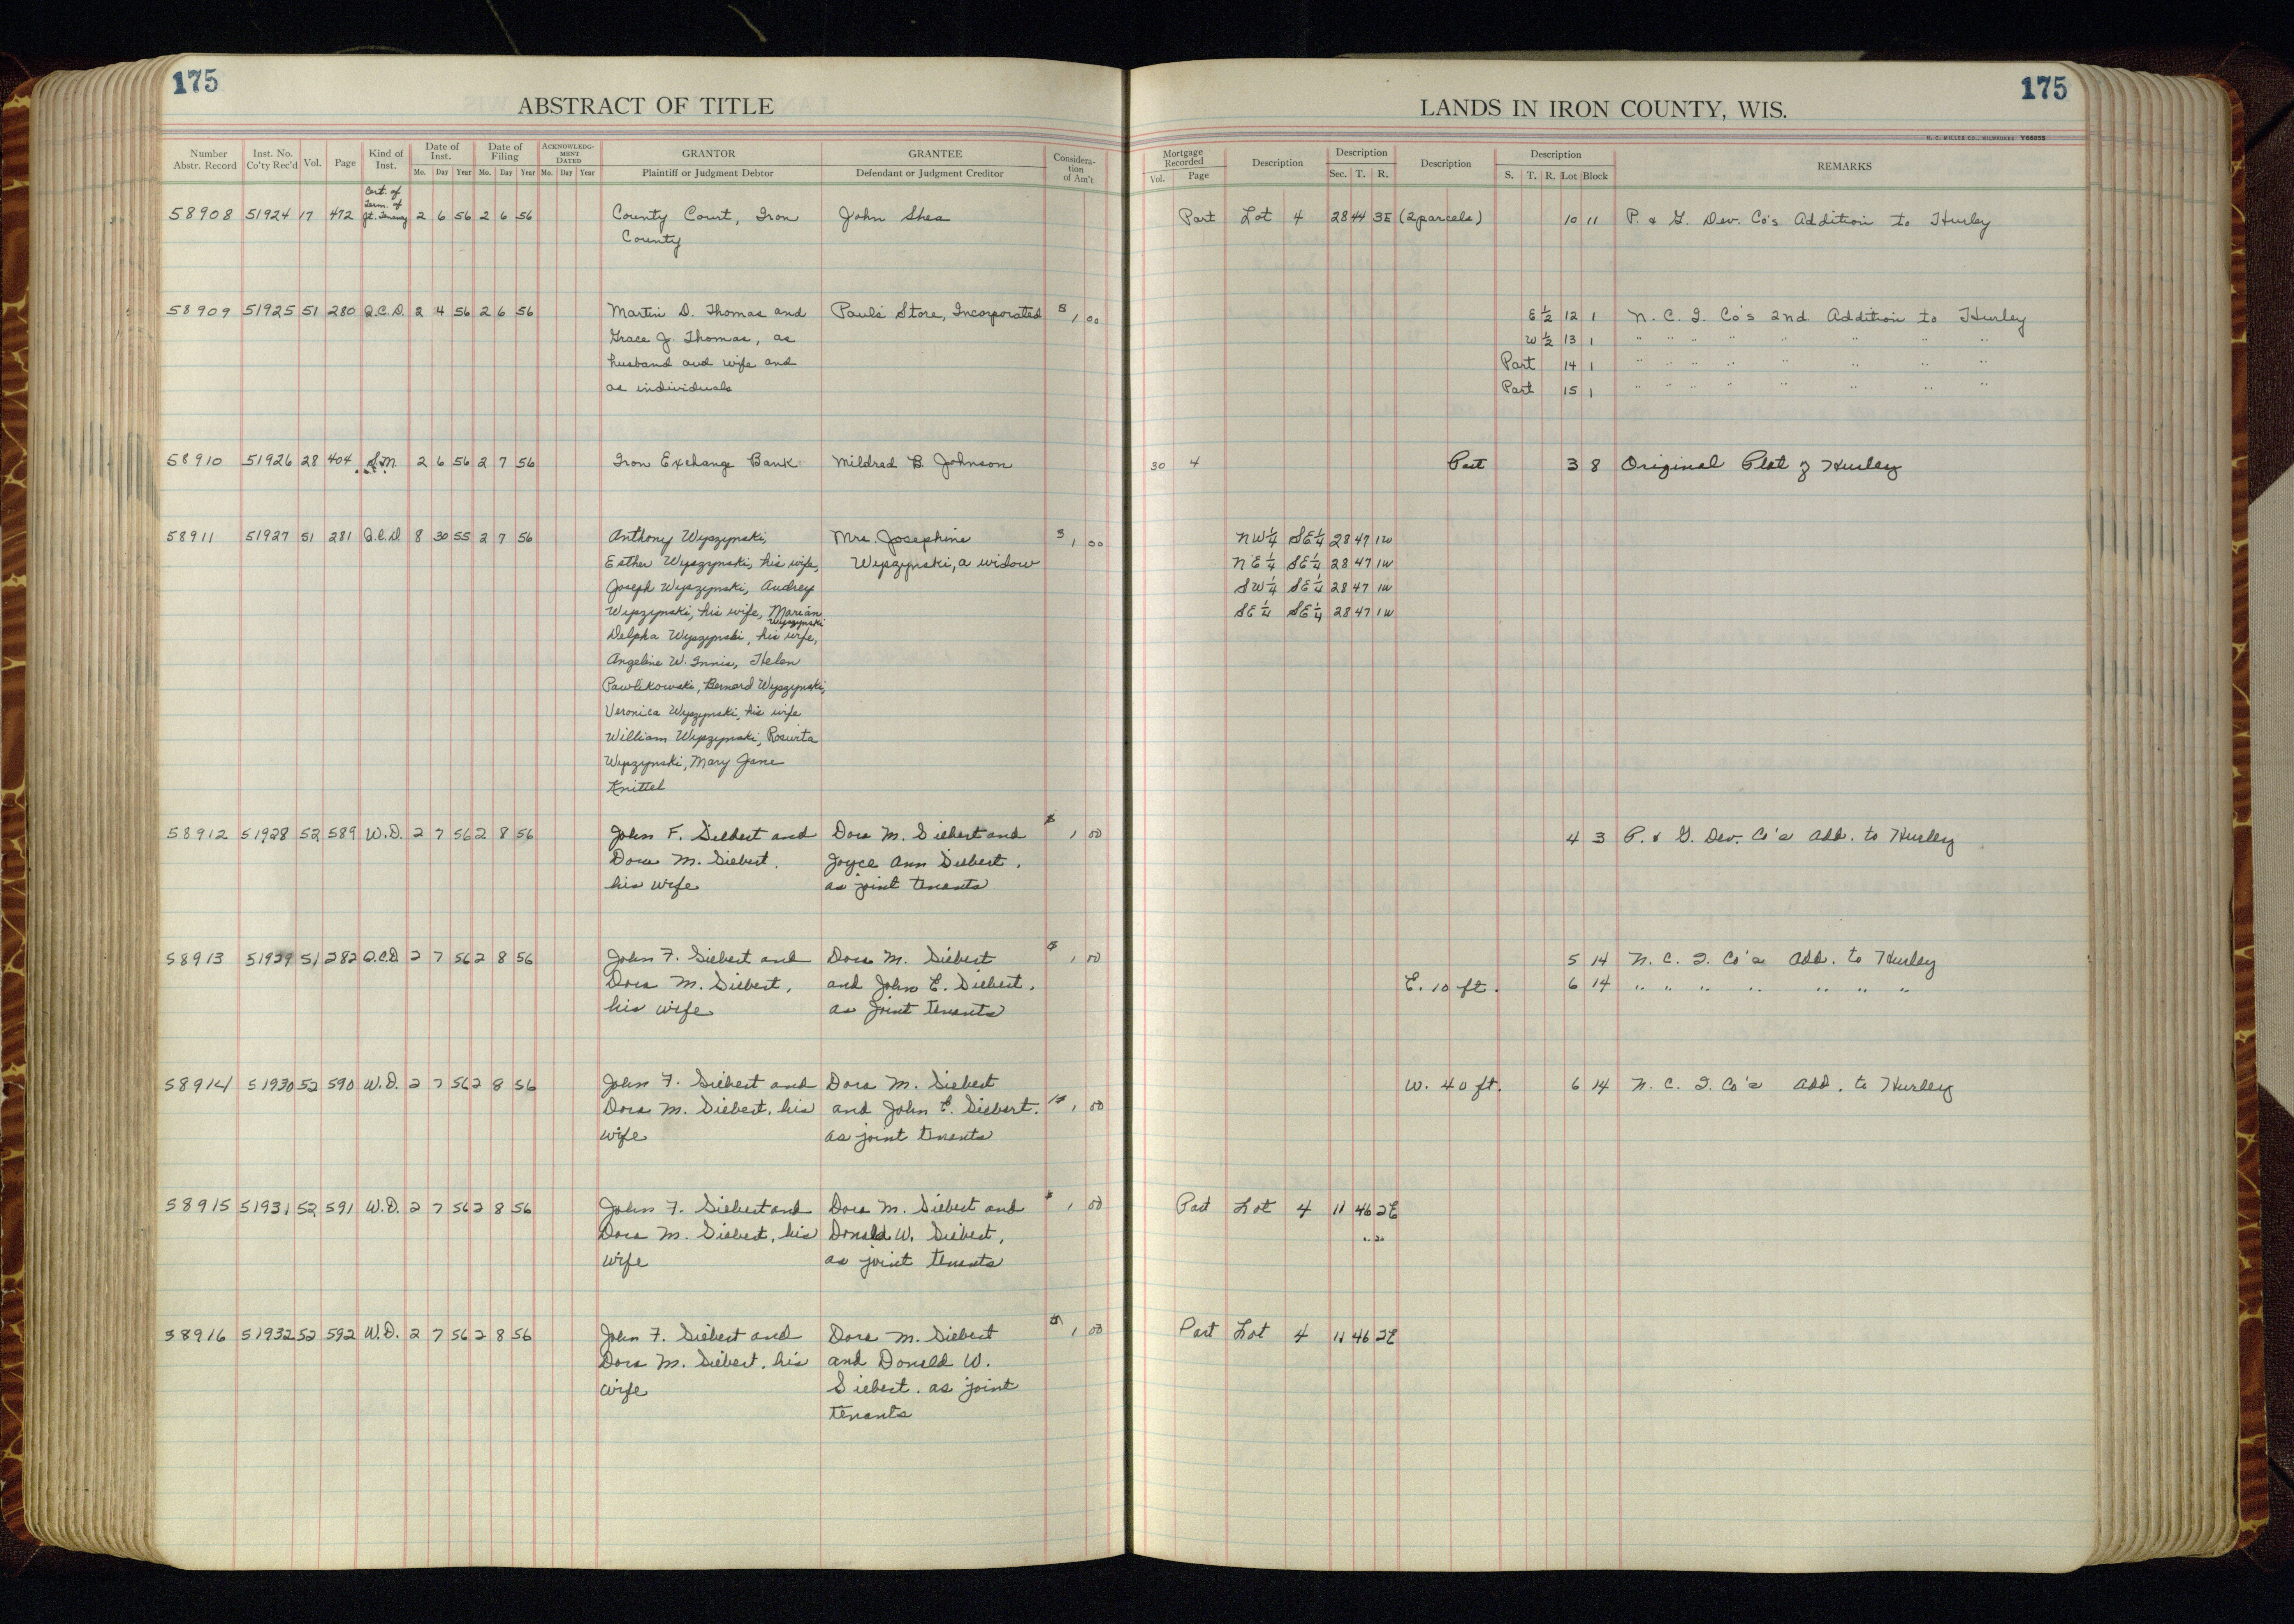 175
ABSTRACT OF TITLE
Number Abstr. Record Inst. No. Co'ty Rec'd Vol. Page Kind of Inst. Date of Inst. Mo. Day Year Date of Filing Mo. Day Year ACKNOWLEDGMENT DATED Mo. Day Year GRANTOR Plaintiff or Judgment Debtor GRANTEE Defendant or Judgment Creditor Consideration of Am't
58908 51924 17 472 Cert. of Term. of Jt. Tenancy 2 6 56 2 6 56 County Court, Iron John Shea
County
58909 51925 51 280 Q.C.D. 2 4 56 2 6 56 Martin D. Thomas and Paul's Store, Incorporated $ 1 00
Grace J. Thomas, as
husband and wife and
as individuals
58910 51926 28 404 S.M. 2 6 56 2 7 56 Iron Exchange Bank Mildred B. Johnson
58911 51927 51 281 Q.C.D. 8 30 55 2 7 56 Anthony Wyszynski, Mrs. Josephine $ 1 00
Esther Wyszynski, his wife, Wyszynski, a widow
Joseph Wyszynski, Audrey
Wyszynski, his wife, Marian Wyszynski
Delpha Wyszynski, his wife,
Angeline W. Innis, Helen
Pawlikowski, Bernard Wyszynski,
Veronica Wyszynski, his wife
William Wyszynski, Roswita
Wyszynski, Mary Jane
Knittel
58912 51928 52 589 W.D. 2 7 56 2 8 56 John F. Siebert and Dora M. Siebert and $ 1 00
Dora M. Siebert, Joyce Ann Siebert,
his wife as joint tenants
58913 51929 51 282 Q.C.D. 2 7 56 2 8 56 John F. Siebert and Dora M. Siebert $ 1 00
Dora M. Siebert, and John E. Siebert,
his wife as joint tenants
58914 51930 52 590 W.D. 2 7 56 2 8 56 John F. Siebert and Dora M. Siebert
Dora M. Siebert, his and John E. Siebert, $ 1 00
wife as joint tenants
58915 51931 52 591 W.D. 2 7 56 2 8 56 John F. Siebert and Dora M. Siebert and $ 1 00
Dora M. Siebert, his Donald W. Siebert,
wife as joint tenants
58916 51932 52 592 W.D. 2 7 56 2 8 56 John F. Siebert and Dora M. Siebert $ 1 00
Dora M. Siebert, his and Donald W.
wife Siebert, as joint
tenants
175
LANDS IN IRON COUNTY, WIS.
H. C. MILLER CO., MILWAUKEE Y66855
Mortgage Recorded Vol. Page Description Description Sec. T. R. Description Description S. T. R. Lot Block REMARKS
Part Lot 4 28 44 3E (2 parcels) 10 11 P. & G. Dev. Co's Addition to Hurley
E ½ 12 1 N. C. I. Co's 2nd Addition to Hurley
W ½ 13 1 " " " " " " " "
Part 14 1 " " " " " " " "
Part 15 1 " " " " " " " "
30 4 Part 3 8 Original Plat of Hurley
NW¼ SE¼ 28 47 1W
NE¼ SE¼ 28 47 1W
SW¼ SE¼ 28 47 1W
SE¼ SE¼ 28 47 1W
4 3 P. & G. Dev. Co's Add. to Hurley
5 14 N. C. I. Co's Add. to Hurley
E. 10 ft. 6 14 " " " " " " "
W. 40 ft. 6 14 N. C. I. Co's Add. to Hurley
Part Lot 4 11 46 2E
Part Lot 4 11 46 2E